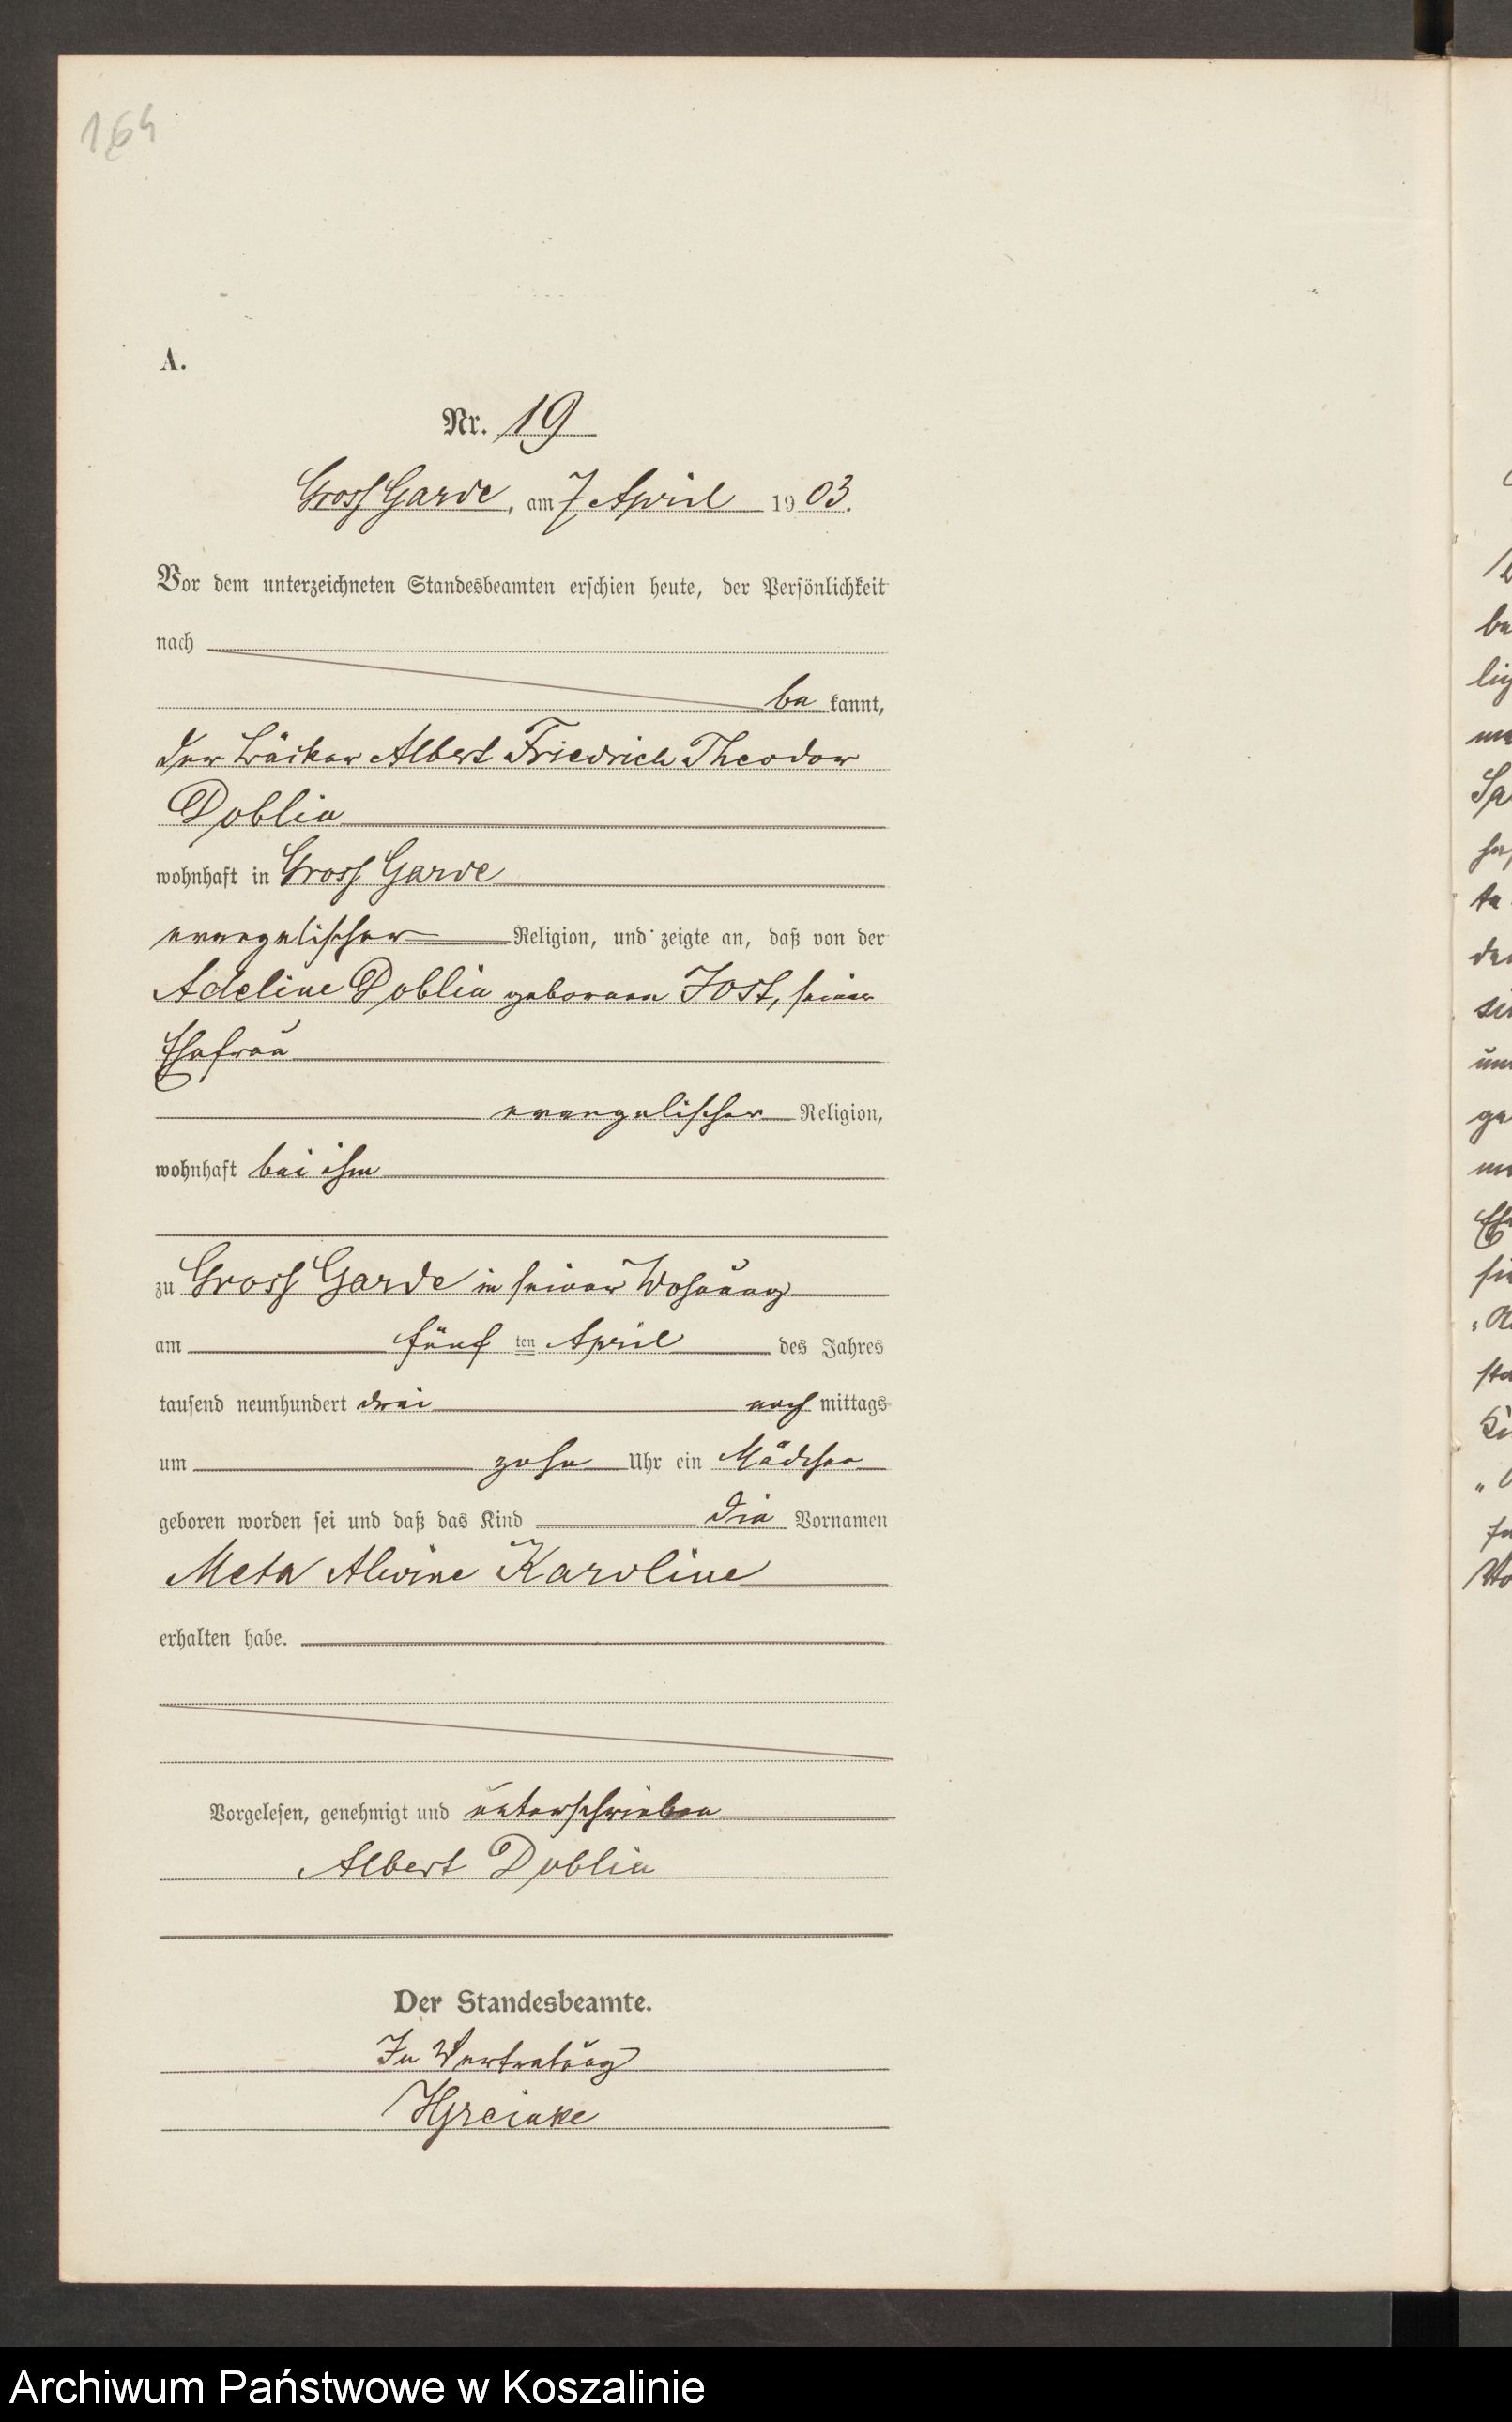 164
A.
Nr. 19
Gross Garde, am 7 April 1903.
Vor dem unterzeichneten Standesbeamten erschien heute, der Persönlichkeit
nach
be kannt,
der Bäcker Albert Friedrich Theodor
Doblin
wohnhaft in Gross Garde
evangelischer Religion, und zeigte an, daß von der
Adeline Doblin geborenen Jost, seiner
Ehefrau
evangelischer Religion,
wohnhaft bei ihm
zu Gross Garde in seiner Wohnung
am fünf ten April des Jahres
tausend neunhundert drei nach mittags
um zehn Uhr ein Mädchen
geboren worden sei und daß das Kind die Vornamen
Meta Alwine Karoline
erhalten habe.
Vorgelesen, genehmigt und unterschrieben
Albert Doblin
Der Standesbeamte.
In Vertretung
Archiwum Państwowe w Koszalinie